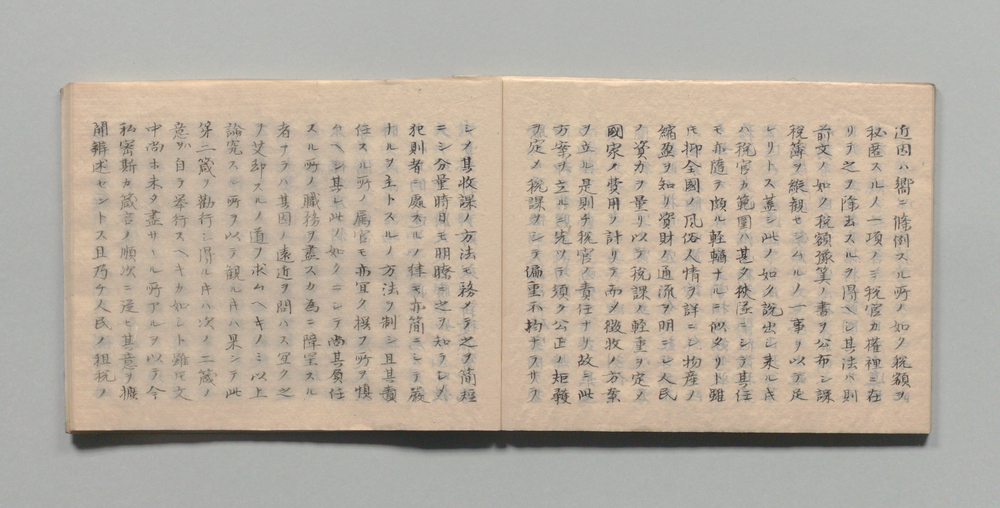 近因ハ嚮ニ條例スル所ノ如ク稅額ヲ
秘匿スルノ一項ノミ稅官カ權裡ニ在
リテ之ヲ除去スルヲ得ヘシ其法ハ則
前文ノ如ク稅額豫算ノ書ヲ公布シ課
稅簿ヲ縱觀セシムルノ一事ヲ以テ足
レリトス蓋シ此ノ如ク說出シ来ル時
ハ稅官カ範圍ハ甚タ狹隘ニシテ其任
モ亦隨テ頗ル輕輶ナルニ似タリト雖
𪜈抑全國ノ風俗人情ヲ詳ニシ物産ノ
縮盈ヲ知リ資財ノ通流ヲ明ニシ人民
ノ資力ヲ量リ以テ稅課ノ輕重ヲ定メ
國家ノ費用ヲ計リテ而メ徵收ノ方案
ヲ立ル是則チ稅官ノ責任ナリ故ニ此
方案ヲ立ルニ先ツテ須ク公正ノ矩矱
ヲ定メ稅課ヲシテ偏重不均ナラサラ
シメ其收課ノ方法モ務メテ之ヲ簡短
ニシ分量時日モ明瞭ニ之ヲ知ラシメ
犯則者ニ處スルノ律モ亦簡ニシテ嚴
ナルヲ主トスルノ方法ヲ制シ且其責
任スル所ノ属官モ亦宜ク撰フ所ヲ慎
ムヘシ其レ此ノ如クニシテ尚其負任
スル所ノ職務ヲ盡スカ為ニ障害スル
者アラハ其因ノ遠近ヲ問ハス宜ク之
ヲ芟却スルノ道ヲ求ムヘキノミ以上
論究スル所ヲ以テ觀ル時ハ果シテ此
第二箴ヲ勸行シ得ル時ハ次ノ二箴ノ
意ハ自ラ舉行スヘキカ如シト雖𪜈文
中尚ホ未タ盡サヽル所アルヲ以テ今
私密斯カ箴言ノ順次ニ逐ヒ其意ヲ擴
開辨述セントス且乃チ人民ノ租稅ノ